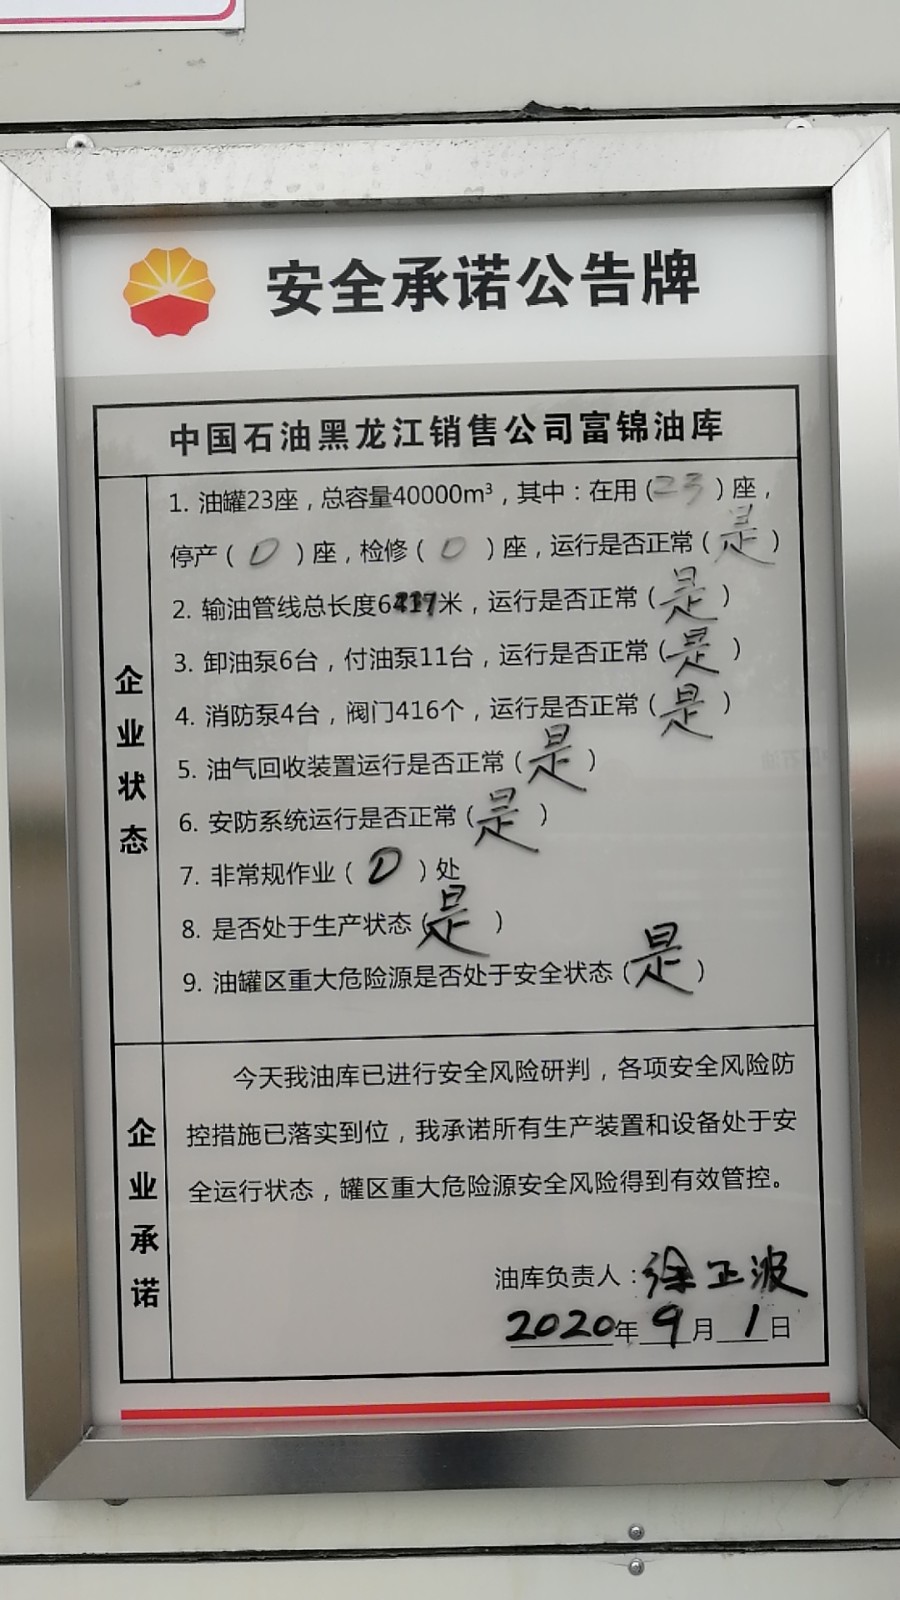 安全承诺公告牌
中国石油黑龙江销售公司富锦油库
企业状态
1. 油罐23座，总容量40000m³，其中：在用(23)座，
停产(0)座，检修(0)座，运行是否正常(是)
2. 输油管线总长度米，运行是否正常(是)
3. 卸油泵6台，付油泵11台，运行是否正常(是)
4. 消防泵4台，阀门416个，运行是否正常(是)
5. 油气回收装置运行是否正常(是)
6. 安防系统运行是否正常(是)
7. 非常规作业(0)处
8. 是否处于生产状态(是)
9. 油罐区重大危险源是否处于安全状态(是)
企业承诺
今天我油库已进行安全风险研判，各项安全风险防
控措施已落实到位，我承诺所有生产装置和设备处于安
全运行状态，罐区重大危险源安全风险得到有效管控。
油库负责人：徐正波
2020年9月1日